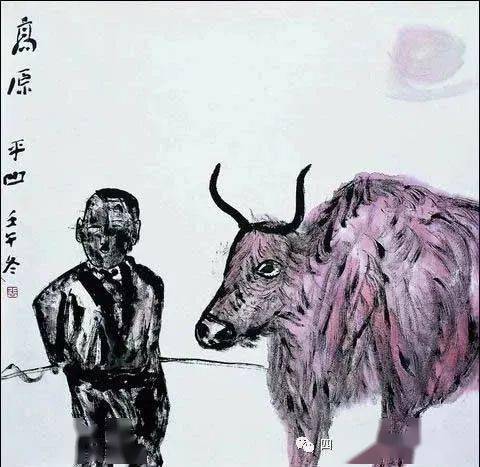 高原
平凹
壬午冬
四